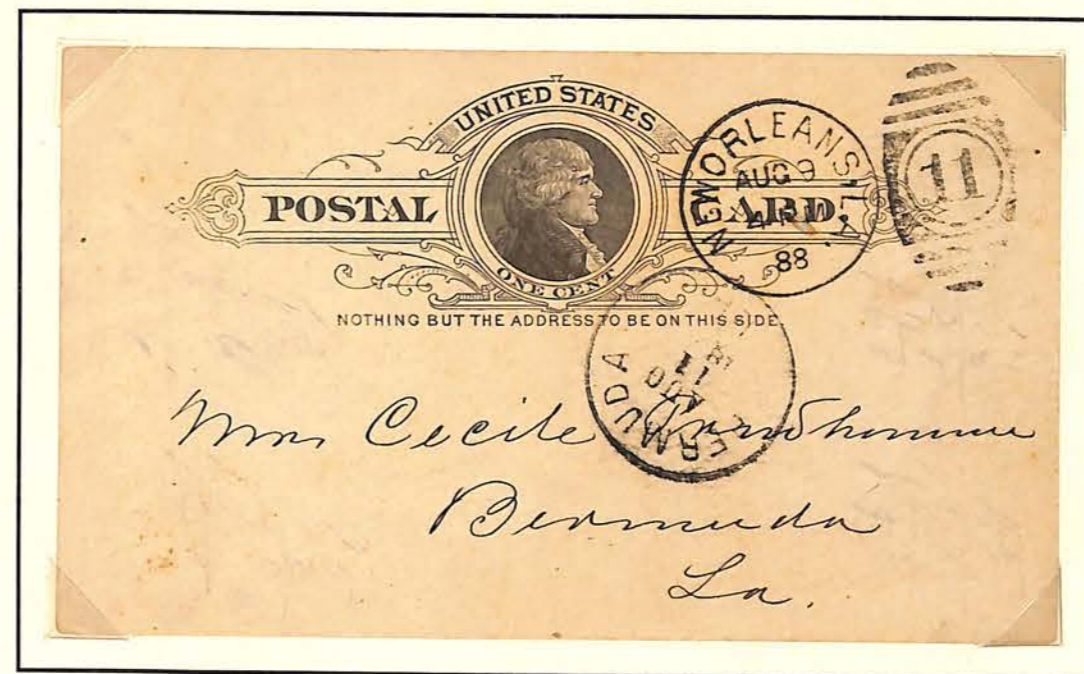 UNITED STATES
POSTAL CARD
ONE CENT
NOTHING BUT THE ADDRESS TO BE ON THIS SIDE.
NEW ORLEANS, LA.
AUG 9
88
11
BERMUDA
AUG
11
Cecile Prudhomme
Bermuda
La.